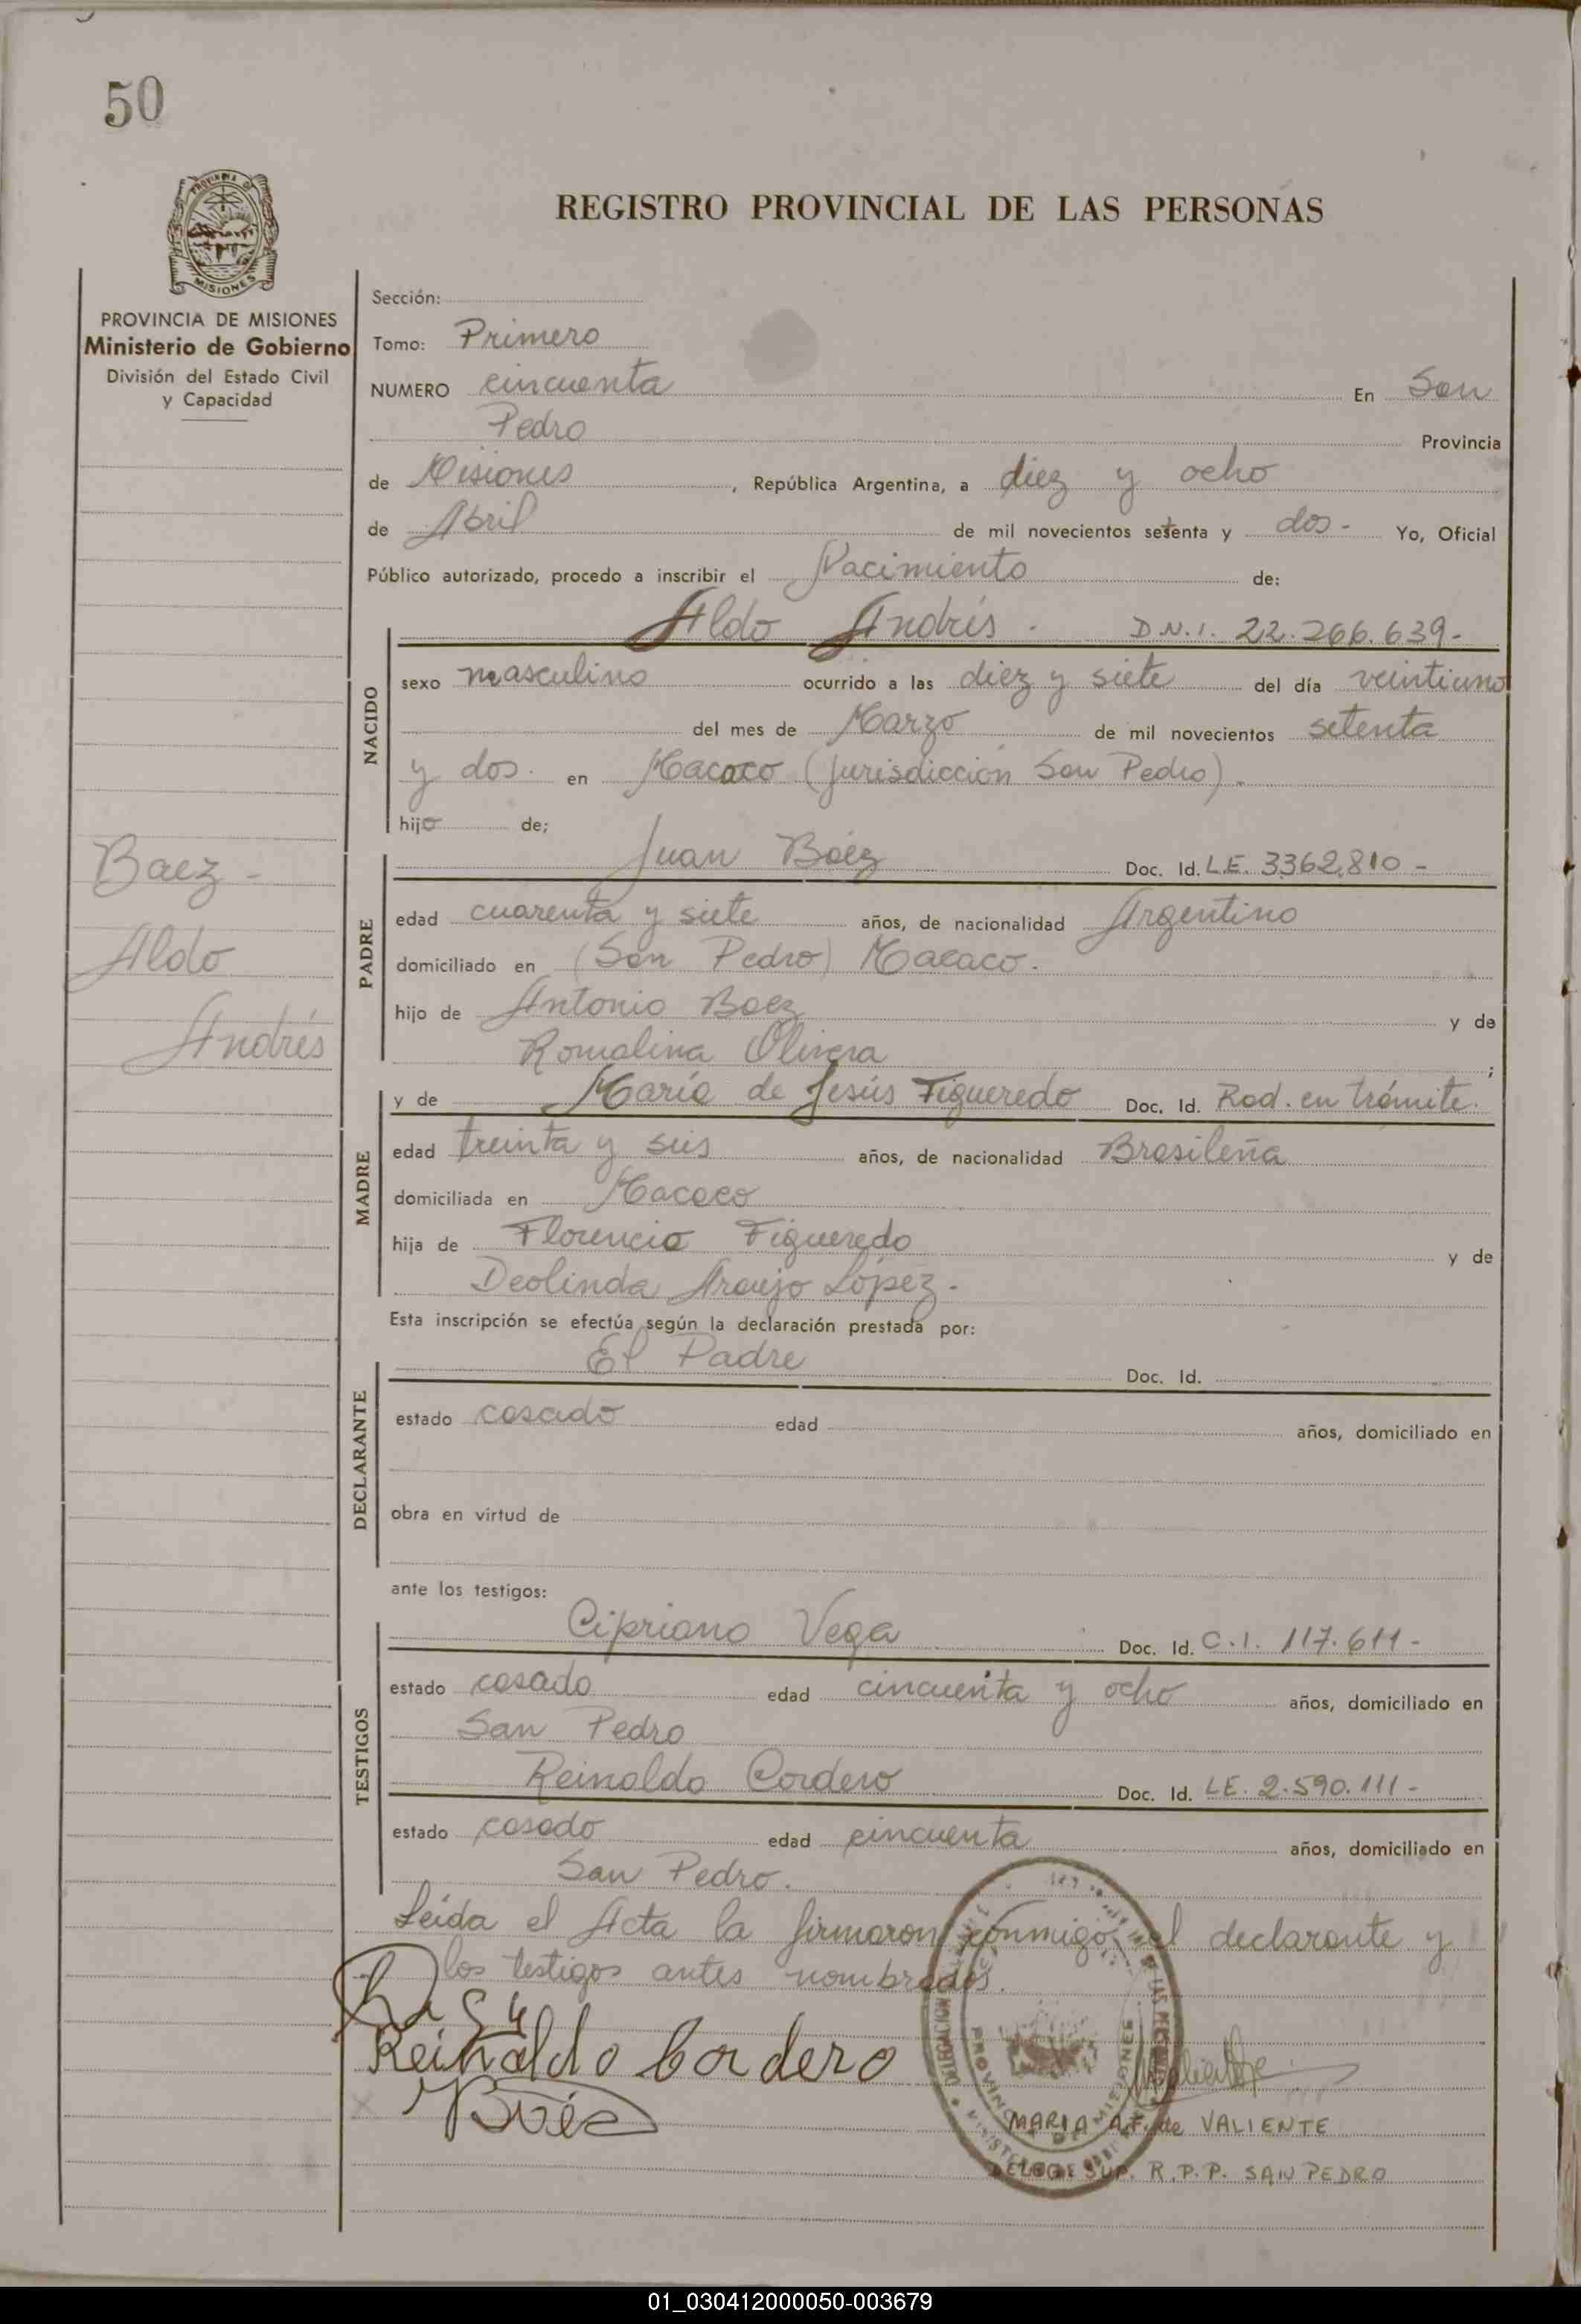 50
PROVINCIA DE
MISIONES
REGISTRO PROVINCIAL DE LAS PERSONAS
PROVINCIA DE MISIONES
Ministerio de Gobierno
División del Estado Civil
y Capacidad
Baez -
Aldo
Andrés
Sección:
Tomo: Primero
NUMERO cincuenta En San
Pedro Provincia
de Misiones, República Argentina, a diez y ocho
de Abril de mil novecientos setenta y dos - Yo, Oficial
Público autorizado, procedo a inscribir el Nacimiento de:
Aldo Andrés. D.N.I. 22.266.639-
NACIDO
sexo masculino ocurrido a las diez y siete del día veintiuno
del mes de Marzo de mil novecientos setenta
y dos. en Macaco (Jurisdicción San Pedro).
hijo de;
PADRE
Juan Báez Doc. Id. L.E. 3.362.810 -
edad cuarenta y siete años, de nacionalidad Argentino
domiciliado en (San Pedro) Macaco.
hijo de Antonio Baez y de
Romalina Olivera ;
MADRE
y de María de Jesús Figueredo Doc. Id. Rad. en trámite.
edad treinta y seis años, de nacionalidad Brasileña
domiciliada en Macaco
hija de Florencio Figueredo y de
Deolinda Araujo López.
Esta inscripción se efectúa según la declaración prestada por:
DECLARANTE
El Padre Doc. Id.
estado casado edad años, domiciliado en
obra en virtud de
ante los testigos:
TESTIGOS
Cipriano Vega Doc. Id. C.I. 117.611-
estado casado edad cincuenta y ocho años, domiciliado en
San Pedro
Reinaldo Cordero Doc. Id. L.E. 2.590.111-
estado casado edad cincuenta años, domiciliado en
San Pedro.
Leída el Acta la firmaron conmigo, el declarante y
los testigos antes nombrados.
Reinaldo Cordero
Baéz
DELEGACION
PROVINCIA DE MISIONES
MARIA A.F. de VALIENTE
DELEG. SUP. R.P.P. SAN PEDRO
01_030412000050-003679